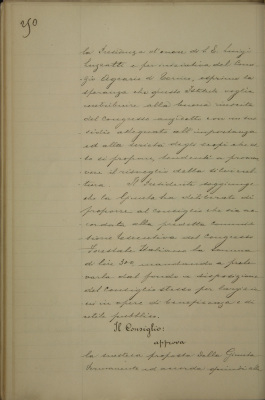 250
la Presidenza d'onore di S. E. Luigi
Luzzatti e per iniziativa del Comi-
zio Agrario di Torino, esprime la
speranza che questo Istituto voglia
contribuire alla buona riuscita
del Congresso anzidetto con un sus-
sidio adeguato all'importanza
ed alla serietà degli scopi che es-
so si propone, tendente a promuo-
vere il risveglio della silvicul-
tura. Il Presidente soggiunge
che la Giunta ha deliberato di
proporre al Consiglio che sia ac-
cordata alla predetta Commis-
sione Esecutiva del Congresso
Forestale Italiano la somma
di lire 300 mandando a prele-
varla dal fondo a disposizione
del Consiglio stesso per largizio-
ni in opere di beneficenza e di
utilità pubblica.
Il Consiglio:
approva
la suestesa proposta della Giunta
ed accorda quindi alla